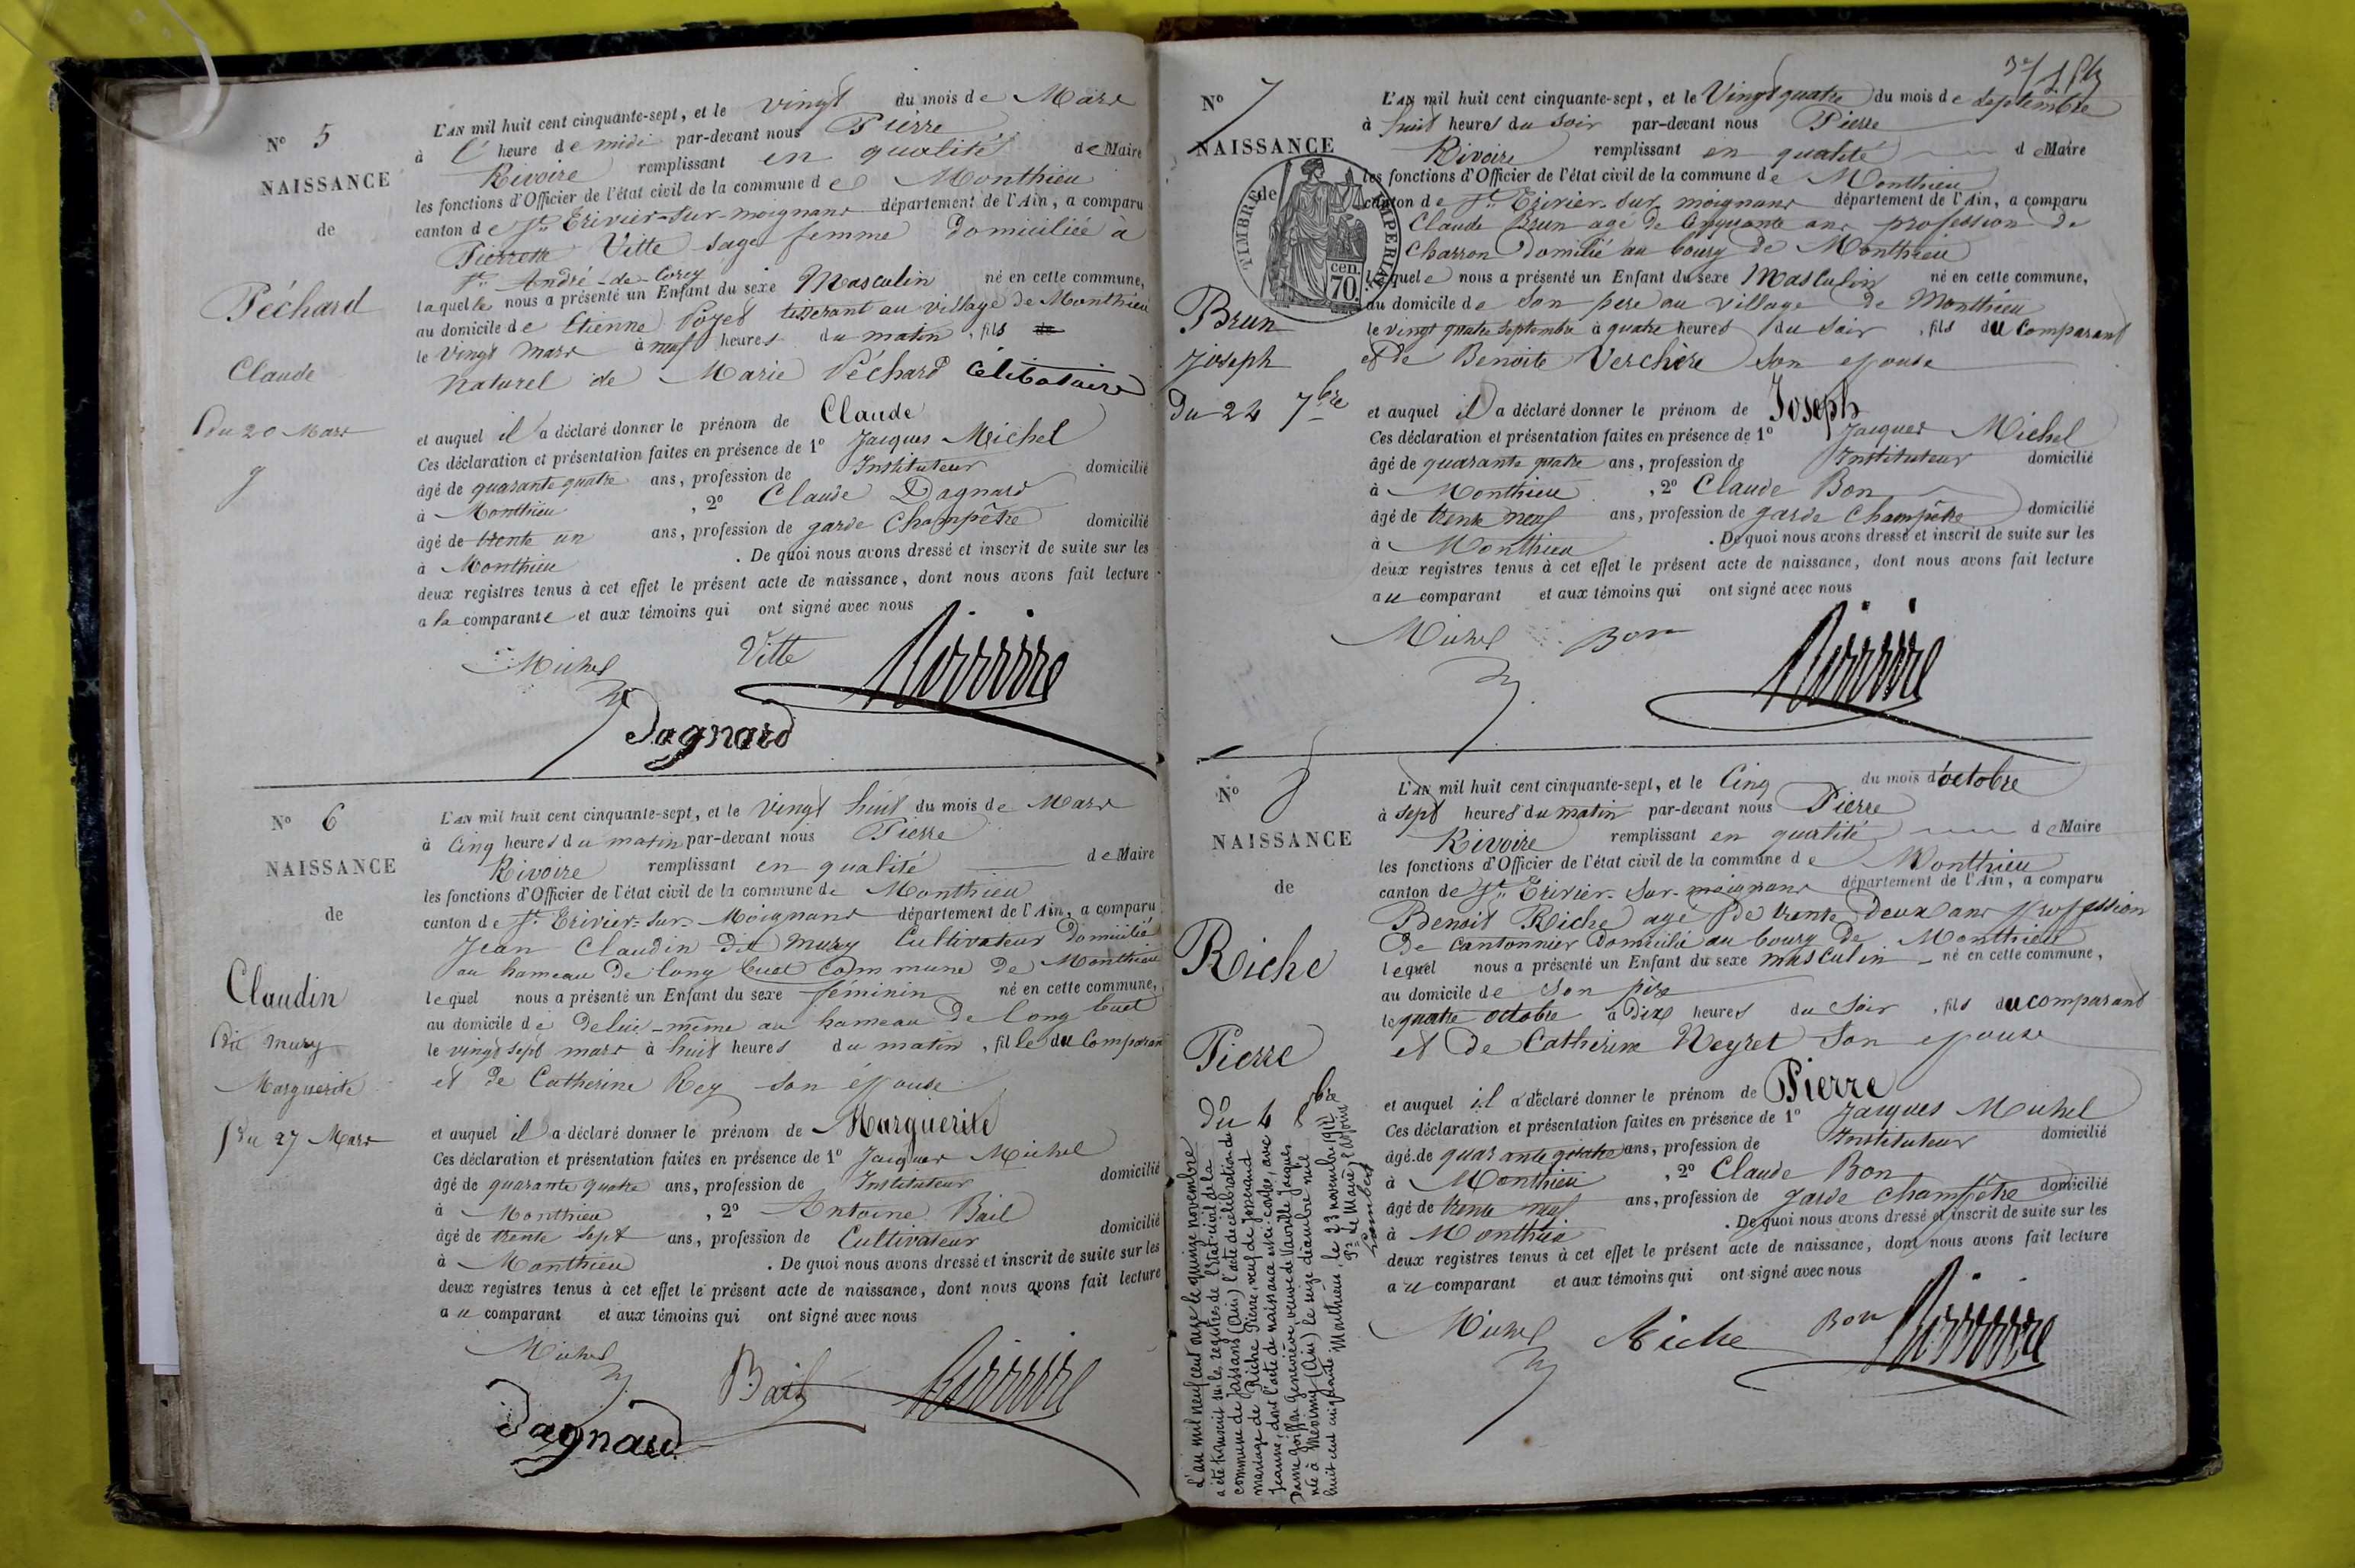 N° 5
NAISSANCE
de
Péchard
Claude
du 20 Mars
L'AN mil huit cent cinquante-sept, et le vingt du mois de Mars
à l' heure de midi par-devant nous Pierre
Rivoire remplissant en qualité de Maire
les fonctions d'Officier de l'état civil de la commune de Monthieu
canton de St Trivier-sur-moignans département de l'Ain, a comparu
Pierrette Vitte sage femme domiciliée à
St André-de-Corcy
laquelle nous a présenté un Enfant du sexe Masculin né en cette commune,
au domicile de Etienne Poyet tisserant au village de Monthieu
le vingt mars à neuf heures du matin, fils
naturel de Marie Péchard Célibataire
et auquel il a déclaré donner le prénom de Claude
Ces déclaration et présentation faites en présence de 1° Jacques Michel
âgé de quarante quatre ans, profession de Instituteur domicilié
à Monthieu, 2° Claude Dagnard
âgé de trente un ans, profession de garde Champêtre domicilié
à Monthieu. De quoi nous avons dressé et inscrit de suite sur les
deux registres tenus à cet effet le présent acte de naissance, dont nous avons fait lecture
a la comparante et aux témoins qui ont signé avec nous
Michel Vitte Rivoire
Dagnard
N° 6
NAISSANCE
de
Claudin
dit Mury
Marguerite
du 27 Mars
L'AN mil huit cent cinquante-sept, et le vingt huit du mois de Mars
à Cinq heures du matin par-devant nous Pierre
Rivoire remplissant en qualité de Maire
les fonctions d'Officier de l'état civil de la commune de Monthieu
canton de St Trivier-sur-Moignans département de l'Ain, a comparu
Jean Claudin dit Mury Cultivateur domicilié
au hameau de long buet commune de Monthieu
lequel nous a présenté un Enfant du sexe féminin né en cette commune,
au domicile de de lui-même au hameau de long buet
le vingt sept mars à huit heures du matin, fille du Comparant
et de Catherine Rey son épouse
et auquel il a déclaré donner le prénom de Marguerite
Ces déclaration et présentation faites en présence de 1° Jacques Michel
âgé de quarante quatre ans, profession de Instituteur domicilié
à Monthieu, 2° Antoine Bail
âgé de trente sept ans, profession de Cultivateur domicilié
à Monthieu. De quoi nous avons dressé et inscrit de suite sur les
deux registres tenus à cet effet le présent acte de naissance, dont nous avons fait lecture
au comparant et aux témoins qui ont signé avec nous
Michel Bail Rivoire
Dagnard
N° 7
NAISSANCE
de
TIMBRE IMPERIAL
70 cen.
Brun
Joseph
du 24 7bre
L'AN mil huit cent cinquante-sept, et le Vingt quatre du mois de Septembre
à huit heures du soir par-devant nous Pierre
Rivoire remplissant en qualité de Maire
les fonctions d'Officier de l'état civil de la commune de Monthieu
canton de St Trivier-sur-moignans département de l'Ain, a comparu
Claude Brun agé de Cinquante ans profession de
Charron domicilié au bourg de Monthieu
lequel nous a présenté un Enfant du sexe Masculin né en cette commune,
au domicile de son père au village de Monthieu
le vingt quatre septembre à quatre heures du soir, fils du Comparant
et de Benoite Verchère son epouse
et auquel il a déclaré donner le prénom de Joseph
Ces déclaration et présentation faites en présence de 1° Jacques Michel
âgé de quarante quatre ans, profession de Instituteur domicilié
à Monthieu, 2° Claude Bon
âgé de trente neuf ans, profession de garde Champêtre domicilié
à Monthieu. De quoi nous avons dressé et inscrit de suite sur les
deux registres tenus à cet effet le présent acte de naissance, dont nous avons fait lecture
au comparant et aux témoins qui ont signé avec nous
Michel Bon Rivoire
N° 8
NAISSANCE
de
Riche
Pierre
du 4 8bre
L'AN mil huit cent cinquante-sept, et le Cinq du mois d'octobre
à sept heures du matin par-devant nous Pierre
Rivoire remplissant en qualité de Maire
les fonctions d'Officier de l'état civil de la commune de Monthieu
canton de St Trivier-sur-moignans département de l'Ain, a comparu
Benoit Riche agé de trente deux ans profession
de cantonnier domicilié au bourg de Monthieu
lequel nous a présenté un Enfant du sexe masculin né en cette commune,
au domicile de son père
le quatre octobre à dix heures du soir, fils du comparant
et de Catherine Neyret son epouse
et auquel il a déclaré donner le prénom de Pierre
Ces déclaration et présentation faites en présence de 1° Jacques Michel
âgé de quarante quatre ans, profession de Instituteur domicilié
à Monthieu, 2° Claude Bon
âgé de trente neuf ans, profession de garde champêtre domicilié
à Monthieu. De quoi nous avons dressé et inscrit de suite sur les
deux registres tenus à cet effet le présent acte de naissance, dont nous avons fait lecture
au comparant et aux témoins qui ont signé avec nous
Michel Riche Bon Rivoire
L'an mil neuf cent onze le quinze novembre
a été transcrit sur les registres de l'état civil de la
commune de Jassans (Ain) l'acte de célébration du
mariage de Riche Pierre, veuf de Josserand
Jeanne, dont l'acte de naissance est ci-contre, avec
Dame Geneviève, veuve de Jacques
née à (Ain) le seize décembre mil
huit cent cinquante. Monthieu, le 23 novembre 1911
Pr le Maire, l'adjoint